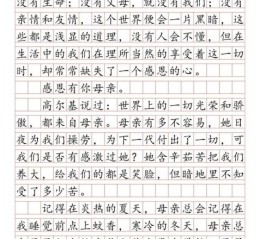 没有生命；没有父母，就没有我们；没有
亲情和友情，这个世界便会一片黑暗，这
些都是浅显的道理，没有人会不懂，但在
生活中的我们在理所当然的享受着这一切
时，却常常缺失了一个感恩的心。
感恩有你母亲。
高尔基说过：世界上的一切光荣和骄
傲，都来自母亲。母亲有多不容易，她日
夜为我们操劳，为下一代付出了一切，可
我们是否有感激过她？她含辛茹苦把我们
养大，给我们的都是笑脸，但暗地里不知
受了多少苦。
记得在炎热的夏天，母亲总会记得在
我睡觉前点上蚊香，寒冷的冬天，母亲总